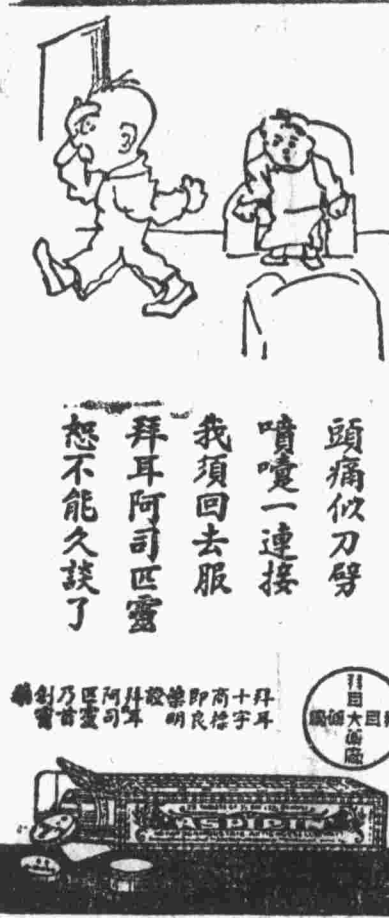 頭痛似刀劈
噴嚏一連接
我須回去服
拜耳阿司匹靈
恕不能久談了
拜耳
十字
商標
即良
藥明
證
拜耳
阿司
匹靈
乃首
創靈
藥
拜耳大藥廠
ASPIRIN